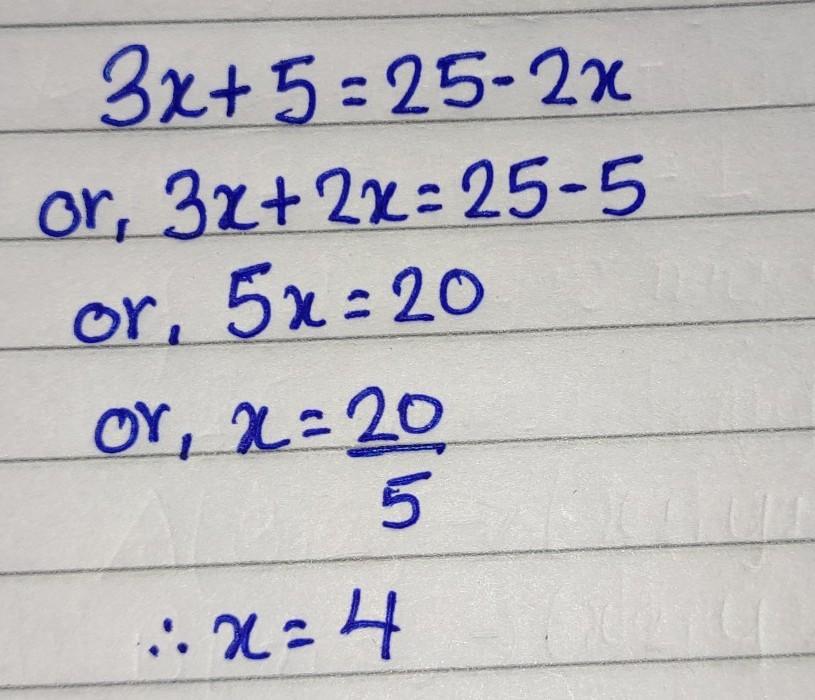 3x+5=25-2x
or, 3x+2x=25-5
or, 5x=20
or, x=20/5
∴ x=4